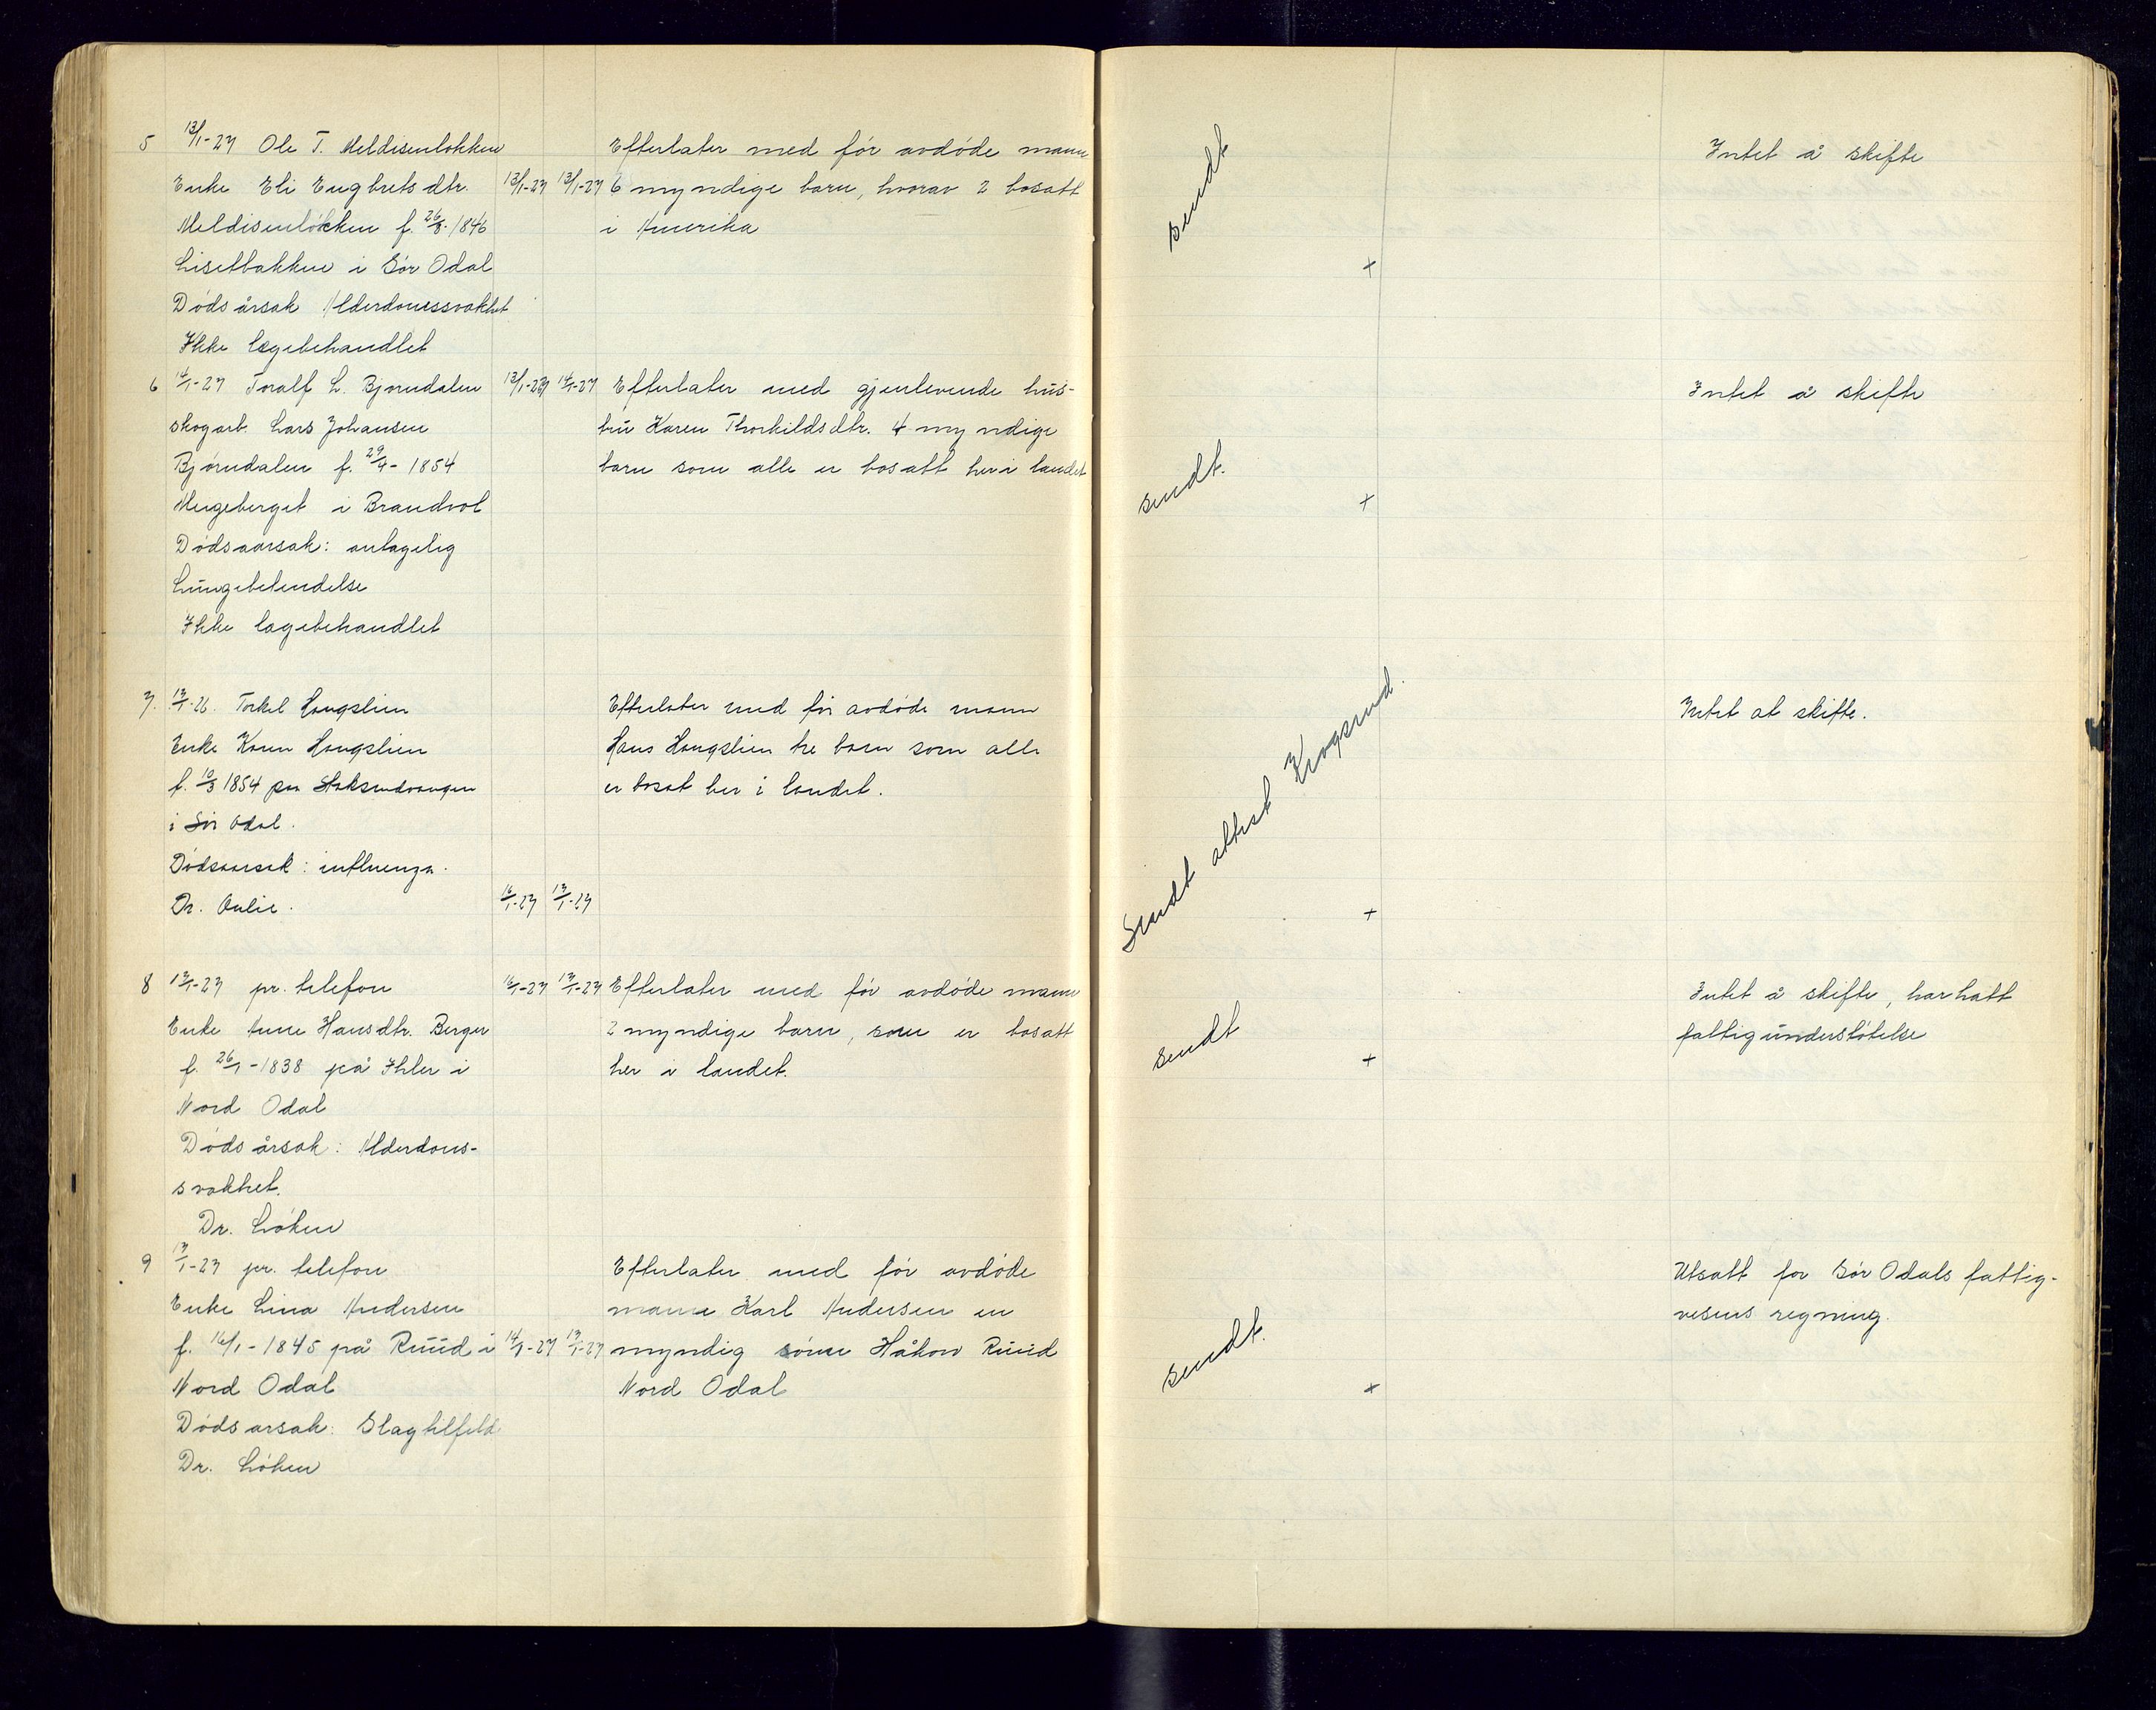 5 13/1-27 Ole T. Meldisenløkken
Enke Eli Engbretsdtr.
Meldisenløkken f. 26/8-1846
Lisetbakken i Sör Odal
Dødsårsak Alderdomssvakhet
Ikke lægebehandlet
13/1-27 13/1-27
Efterlater med før avdøde mann
6 myndige barn, hvorav 2 bosatt
i Amerika
sendt
+
Intet å skifte
6 14/1-27 Toralf L. Bjørndalen
skogarb. Lars Johansen
Bjørndalen f. 29/4-1854
Mengeberget i Brandvol
Dødsaarsak: antagelig
Lungebetendelse
Ikke lægebehandlet
13/1-27 14/1-27
Efterlater med gjenlevende hus-
tru Karen Thorkildsdtr. 4 myndige
barn som alle er bosatt her i landet
sendt.
+
Intet å skifte
7. 17/1-26. Torkel Haugslien
Enke Karen Haugslien
f. 10/3 1854 paa
i Sör Odal.
Dødsaarsak: influenza.
Dr. Aulie.
16/1-27 17/1-27
Efterlater med før avdøde mann
Hans Haugslien tre barn som alle
er bosat her i landet.
Sendt attest Krogsrud.
+
Intet at skifte.
8 17/1-27 pr. telefon
Enke Anne Hansdtr. Berger
f. 26/1-1838 på Ihler i
Nord Odal
Dødsårsak: Alderdoms-
svakhet.
Dr. Løken
16/1-27 17/1-27
Efterlater med før avdøde mann
2 myndige barn, som er bosatt
her i landet.
sendt
+
Intet å skifte, har hatt
fattigunderstøtelse
9 17/1-27 pr. telefon
Enke Lina Andersen
f. 16/1-1845 på Ruud i
Nord Odal
Dødsarsak: Slagtilfeld
Dr. Løken
14/1-27 17/1-27
Efterlater med før avdøde
mann Karl Andersen en
myndig sønn Håkon Ruud
Nord Odal
sendt.
+
Utsatt for Sör Odals fattig-
vesens regning.